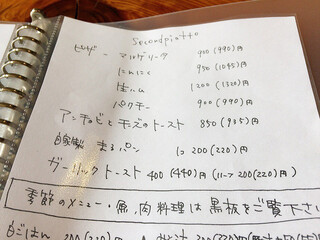 Secondpiatto
ピザ ー マルゲリータ 900(990)円
にんにく 950(1045)円
生ハム 1200(1320)円
パクチー 900(990)円
アンチョビとチーズのトースト 850(935)円
自家製 まるパン 1コ 200(220)円
ガーリックトースト 400(440)円 (ハーフ 200(220)円)
季節のメニュー・魚,肉料理は黒板をご覧下さい
白ごはん